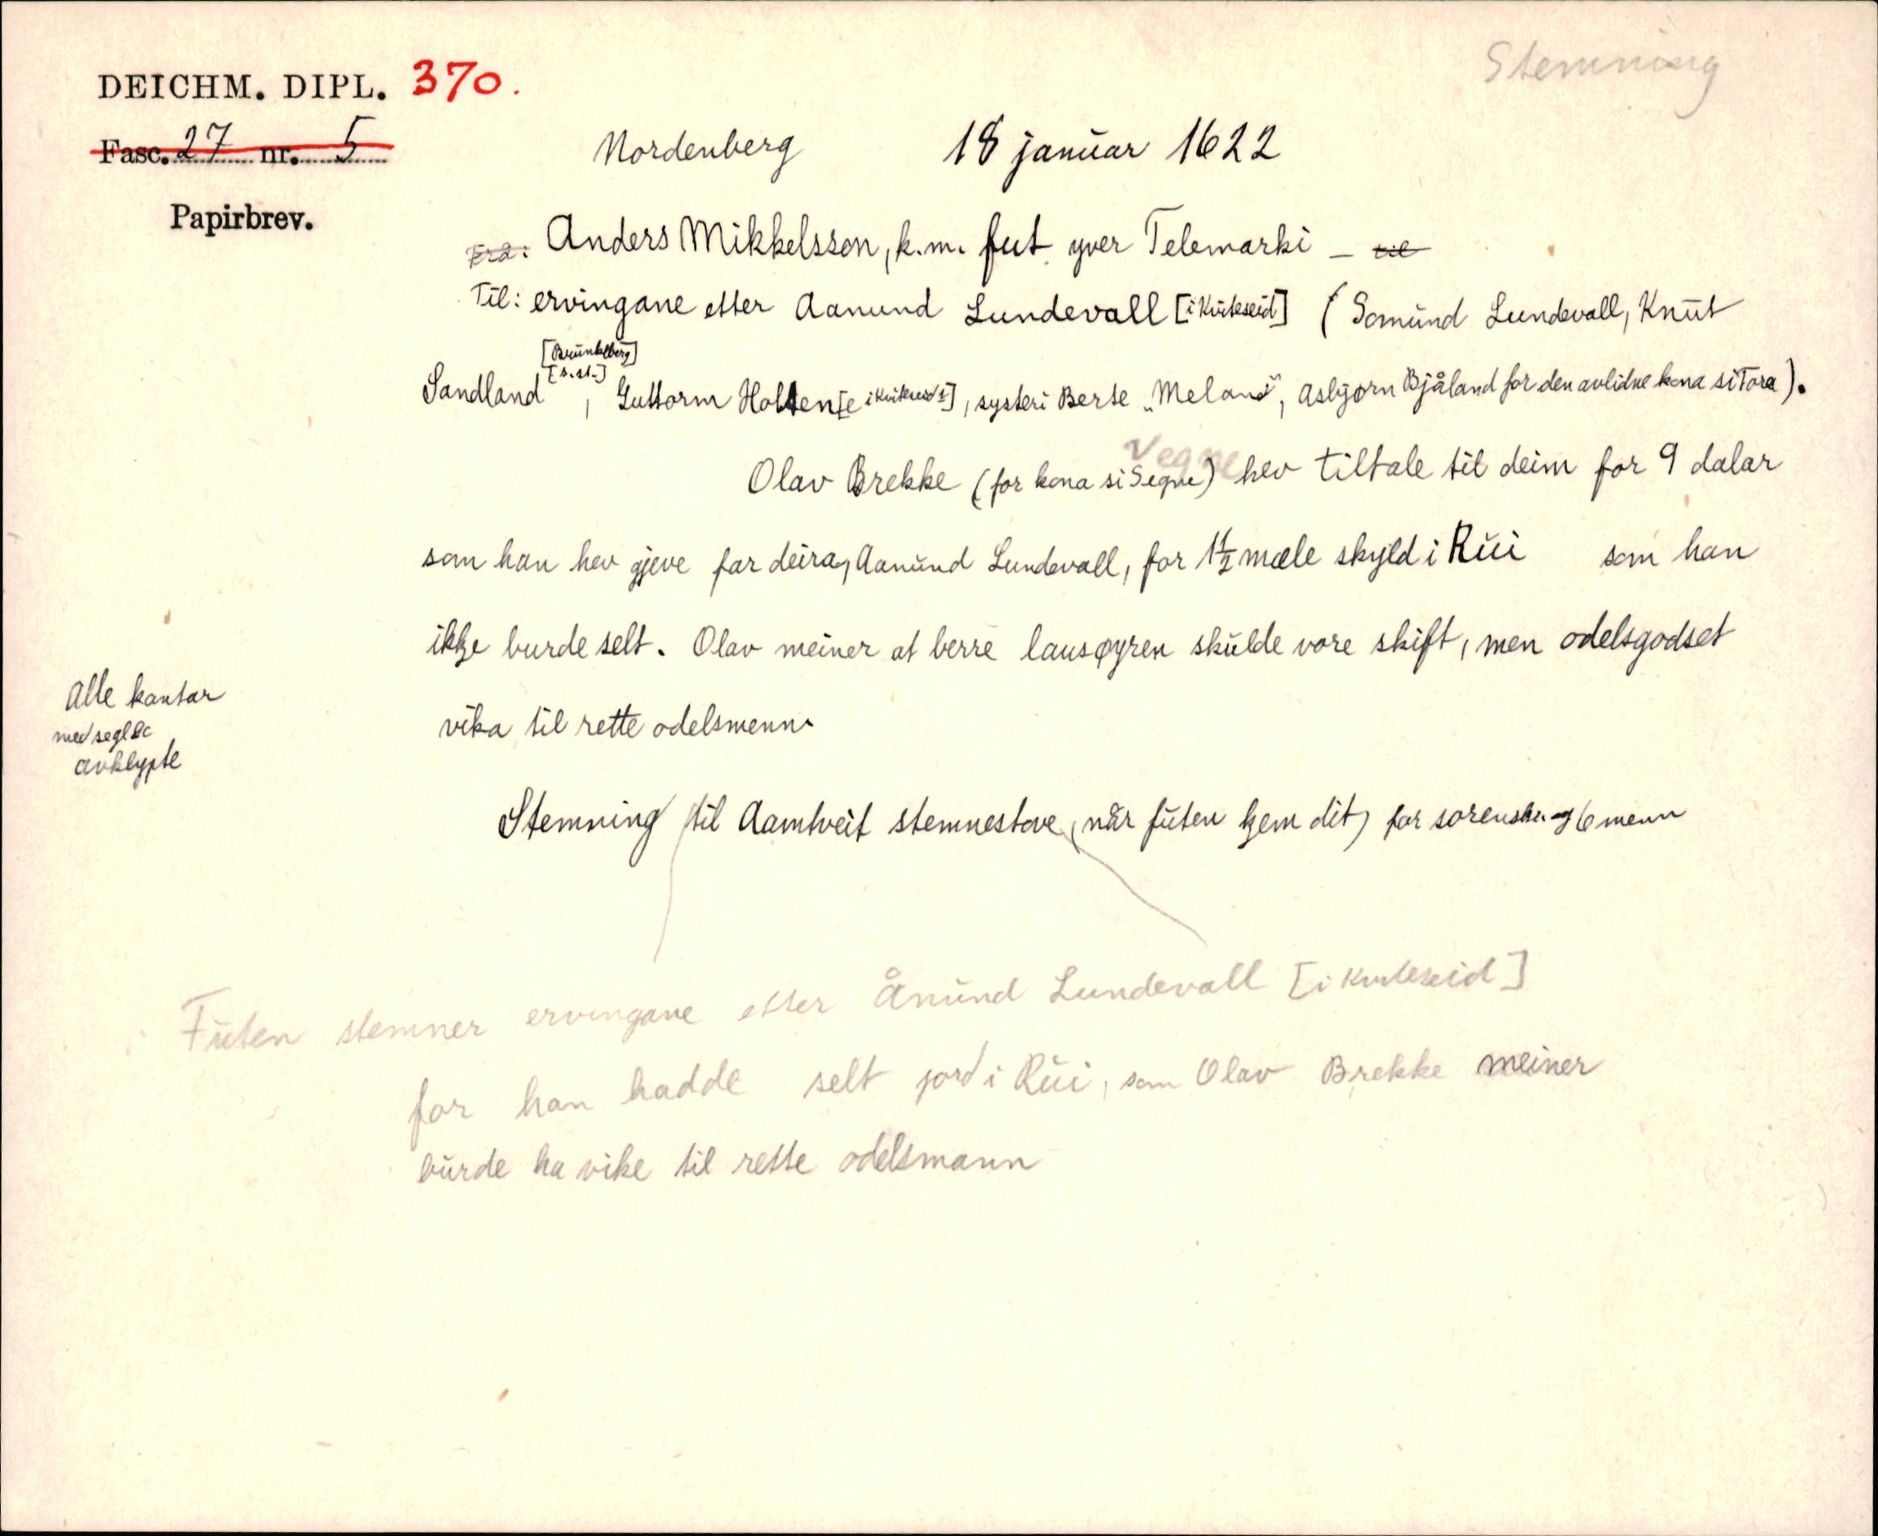 Stemning
DEICHM. DIPL. 370.
Fasc. 27 nr. 5
Nordenberg 18 januar 1622
Papirbrev.
Frå: Anders Mikkelsson, k.m. fut yver Telemarki – til
Til: ervingane etter Aanund Lundevall [i Kviteseid] (Gomund Lundevall, Knut
[Brunkeberg]
[s.st.]
Sandland, Guttorm Holten[e i Kviteseid], systeri Berte „Meland", Asbjørn Bjåland for den avlidne kona si Tora).
Vegne
Olav Brekke (for kona si Segne) hev tiltale til deim for 9 dalar
som han hev gjeve far deira, Aanund Lundevall, for 1½ mæle skyld i Rui som han
ikkje burde selt. Olav meiner at berre lausøyren skulde vore skift, men odelsgodset
vika til rette odelsmenn.
Alle kantar
med segl &c
avklypte
Stemning til Aamtveit stemnestove (når futen kjem dit) for sorenskr. og 6 menn
Futen stemner ervingane etter Ånund Lundevall [i Kviteseid]
for han hadde selt jord i Rui, som Olav Brekke meiner
burde ha vike til rette odelsmann